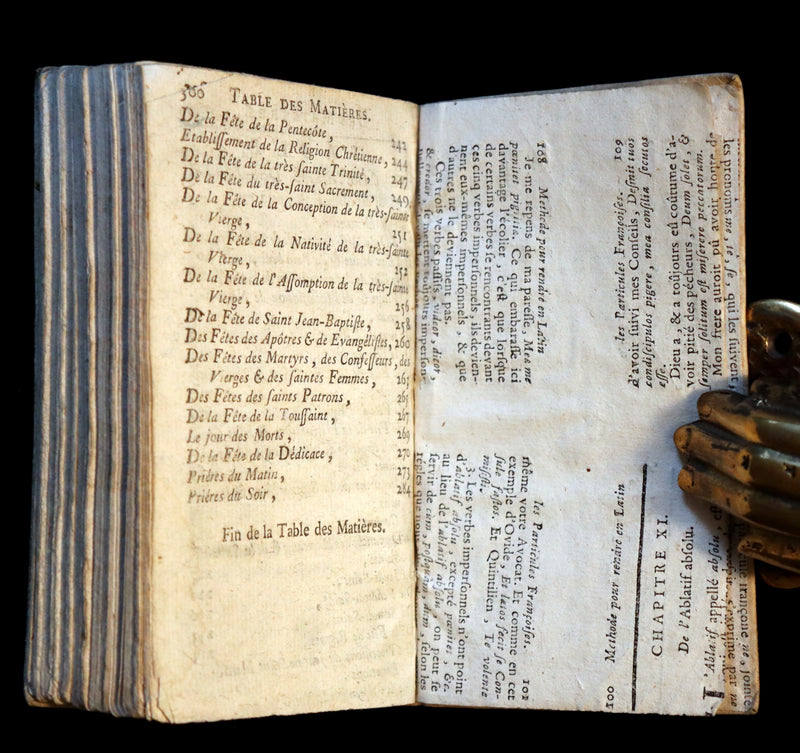 360 TABLE DES MATIÈRES.
De la Fête de la Pentecôte, 242
Etablissement de la Religion Chrétienne, 244
De la Fête de la très sainte Trinité, 247
De la Fête du très-saint Sacrement, 249
De la Fête de la Conception de la très-sainte
Vierge, 251
De la Fête de la Nativité de la très-sainte
Vierge, 252
De la Fête de l'Assomption de la très-sainte
Vierge, 256
De la Fête de Saint Jean-Baptiste, 258
Des Fêtes des Apôtres & de Evangélistes, 260
Des Fêtes des Martyrs, des Confesseurs, des
Vierges & des saintes Femmes, 263
Des Fêtes des saints Patrons, 265
De la Fête de la Toussaint, 267
Le jour des Morts, 269
De la Fête de la Dédicace, 270
Prières du Matin, 273
Prières du Soir, 284
Fin de la Table des Matières.
108 Methode pour rendre en Latin
Je me repens de ma paresse, Mea me
pœnitet pigritia. Ce qui embarasse ici
davantage l'écolier, c'est que lorsque
de certains verbes se rencontrent devant
ces cinq verbes impersonnels, ils devien-
nent eux-mêmes impersonnels, & que
d'autres ne le deviennent pas.
Ces trois verbes passifs, videor, dicor,
& credor, se mettent toujours imperson-
les Particules Françoises. 109
d'avoir suivi mes Conseils,
condiscipulos pigere, mea consilia secutos
esse.
Dieu a, & a toûjours eû coûtume d'a-
voir pitié des pécheurs, Deum solet, &
semper solitum est miserere peccatorum.
Mon frere auroit pû avoir honte de
les pronoms me te se, qui les suivent
les Particules Françoises. 101
même votre Avocat. Et comme en cet
exemple d'Ovide, Et lusos fecit se Con-
sule fastos. Et Quintilien, Te volente
misisti.
3. Les verbes impersonnels n'ont point
d'ablatif absolu, excepté pœnitet &c.
au lieu de l'ablatif absolu, on peut se
servir de cum, postquam, dum, selon les
régles que nous
100 Methode pour rendre en Latin
CHAPITRE XI.
De l'Ablatif absolu.
L'Ablatif appellé absolu, est
s'exprime par ne
françoise ne, jointe